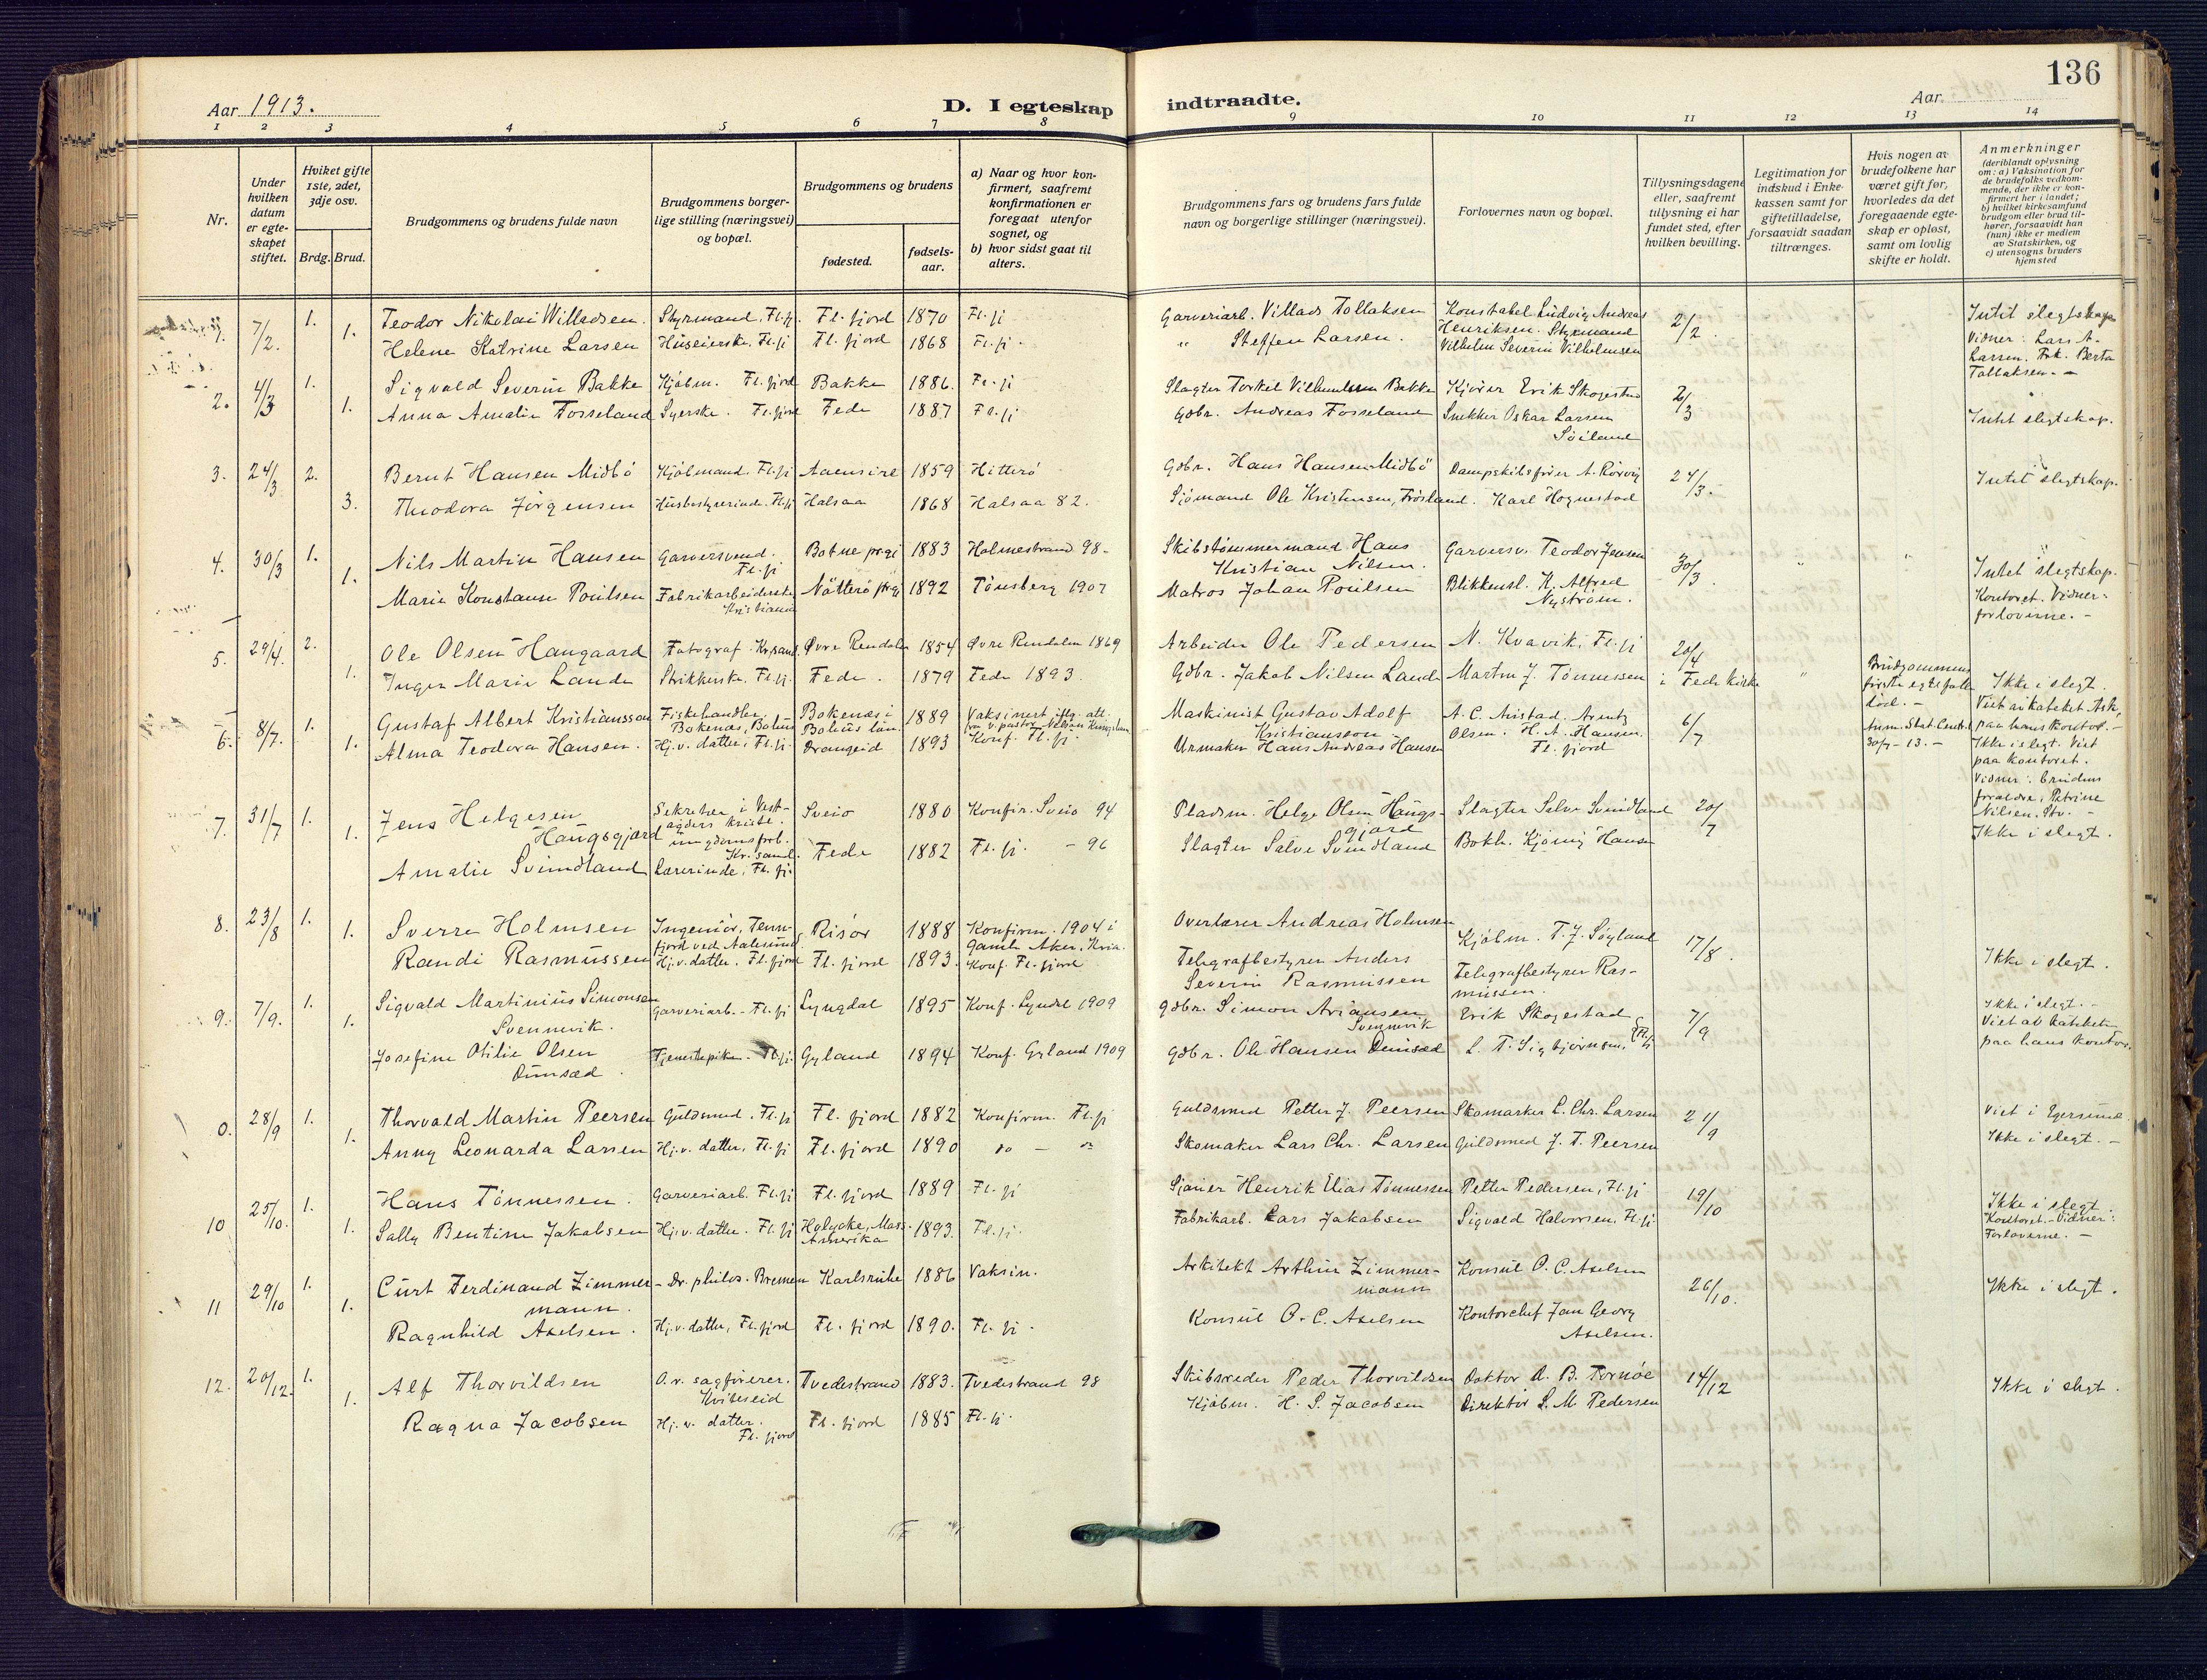 136
Aar 1913.
D. I egteskap indtraadte.
Aar
1 2 3 4 5 6 7 8 9 10 11 12 13 14
Nr.
Under hvilken datum er egteskapet stiftet.
Hviket gifte 1ste, 2det, 3dje osv.
Brdg. Brud.
Brudgommens og brudens fulde navn
Brudgommens borgerlige stilling (næringsvei) og bopæl.
Brudgommens og brudens
fødested.
fødselsaar.
a) Naar og hvor konfirmert, saafremt konfirmationen er foregaat utenfor sognet, og
b) hvor sidst gaat til alters.
Brudgommens fars og brudens fars fulde navn og borgerlige stillinger (næringsvei).
Forlovernes navn og bopæl.
Tillysningsdagene eller, saafremt tillysning ei har fundet sted, efter hvilken bevilling.
Legitimation for indskud i Enkekassen samt for giftetilladelse, forsaavidt saadan tiltrænges.
Hvis nogen av brudefolkene har været gift før, hvorledes da det foregaaende egteskap er opløst, samt om lovlig skifte er holdt.
Anmerkninger
(deriblandt oplysning om: a) Vaksination for de brudefolks vedkommende, der ikke er konfirmert her i landet; b) hvilket kirkesamfund brudgom eller brud tilhører, forsaavidt han (hun) ikke er medlem av Statskirken, og c) utensogns bruders hjemsted
7/2. 1. Teodor Nikolai Willadsen. Styrmand. Fl.fj. Fl. fjord 1870 Fl. fj Garveriarb. Villads Tollaksen Konstabel Ludvig Andreas Henriksen. Styrmand 2/2 Intet slegtskap
1. Helene Katrine Larsen Huseierske. Fl.fj Fl. fjord 1868 Fl. fj. " Steffen Larsen. Vilhelm Severin Vilhelmsen Vidner: Lars A. Larsen. Frk. Berta Tollaksen. -
2. 4/3 1. Sigvald Severin Bakke Kjøbm. Fl. fjord Bakke 1886. Fl. fj Slagter Torkel Vilhelmsen Bakke Kjører Erik Skogestad 2/3
1. Anna Amalie Fosseland Syerske. Fl. fjord Fede 1887 Fl. fj Gdbr. Andreas Fosseland Snekker Oskar Larsen Søiland Intet slegtskap.
3. 24/3 2. Bernt Hansen Midbö Kjölmand. Fl. fj Aaensire 1859 Hitterö Gdbr. Hans Hansen Midbö Dampskibsfører A. Rörvig 24/3. Intet slegtskap.
3. Theodora Jörgensen Husbestyrerinde. Fl.fj Halsaa 1868 Halsaa 82. Sjömand Ole Kristensen, Frösland. Karl Hognestad
4. 30/3 1. Nils Martin Hansen Garversvend. Fl. fj Botne prgj 1883 Holmestrand 98 - Skibstömmermand Hans Kristian Nilsen. Garversv. Teodor Jensen 30/3. Intet slegtskap.
1. Marie Konstanse Poulsen Fabrikarbeiderske Kristiania Nötterö prgj 1892 Tönsberg 1907 Matros Johan Poulsen Blikkensl. K. Alfred Nyström. Kontoret. Vidner: forloverne. -
5. 29/4. 2. Ole Olsen Haugaard Fotograf. Kr.sand. Øvre Rendalen 1854 Øvre Rendalen 1869 Arbeider Ole Pedersen N. Kvavik, Fl. fj 20/4 Brudgommens
1. Inger Marie Lande Strikkerske. Fl. fj. Fede. 1879 Fede 1893. Gdbr. Jakob Nilsen Lande Martin J. Tönnessen i Fede kirke " første egtefælle död. - Ikke i slegt.
6. 8/7. 1. Gustaf Albert Kristiansson Fiskehandler. Bokenæs, Bohus Bokenæs i Bohus län. 1889 Vaksinert iflg. att. Maskinist Gustav Adolf Kristiansson - A. C. Aristad. Arntz 6/7 Viet av kateket Ask, paa hans kontor. -
1. Alma Teodora Hansen. Hj. v. datter, Fl. fj. Drangeid 1893 Konf. Fl. fj. Urmaker Hans Andreas Hansen Olsen. H. A. Hansen. Fl. fjord Anm. Stat. Centr. 30/7 - 13. - Ikke i slegt. Viet paa kontoret. Vidner: brudens forældre, Petrine Nilsen. Stv. -
7. 31/7 1. Jens Helgesen Haugsgjærd Sekretær i Vestagders kristl. ungdomsforb. Kr.sand. Sveio 1880 Konfir. Sveio 94 Pladsm. Helge Olsen Haugsgjærd Slagter Salve Svindland 20/7 Ikke i slegt.
1. Amalie Svindland Lærerinde, Fl. fj. Fede 1882 Fl. fj. - 96 Slagter Salve Svindland Bokh. Kjönig Hansen
8. 23/8 1. Sverre Holmsen Ingeniör, Tennfjord ved Aalesund Risör 1888 Konfirm. 1904 i Gamle Aker, Kria. Overlærer Andreas Holmsen Kjöbm. T. J. Söyland 17/8.
1. Randi Rasmussen Hj. v. datter. Fl. fjord Fl. fjord 1893. Konf. Fl. fjord Telegrafbestyrer Anders Severin Rasmussen Telegrafbestyrer Rasmussen. Ikke i slegt.
9. 7/9. 1. Sigvald Martinius Simonsen Svennevik. Garveriarb. - Fl. fj Lyngdal 1895 Konf. Lyngdl 1909 Gdbr. Simon Ariansen Svennevik Erik Skogestad 7/9 Ikke i slegt. -
1. Josefine Otilie Olsen Dunsæd. Tjenestepike. Fl. fj. Gyland 1894 Konf. Gyland 1909 Gdbr. Ole Hansen Dunsæd L. T. Sigbjörnsen. Fl. fj Viet av kateketen paa hans kontor.
0. 28/9 1. Thorvald Martin Peersen Guldsmed. Fl. fj Fl. fjord 1882 Konfirm. Fl. fj Guldsmed Petter J. Peersen Skomaker L. Chr. Larsen 21/9 Viet i Egersund.
1. Anny Leonarda Larsen Hj. v. datter, Fl. fj Fl. fjord 1890 do - Skomaker Lars Chr. Larsen Guldsmed J. T. Peersen Ikke i slegt. -
10 25/10. 1. Hans Tönnessen. Garveriarb. Fl. fj Fl. fjord 1889 Fl. fj Sjauer Henrik Elias Tönnessen Petter Pedersen, Fl. fj 19/10 Ikke i slegt
1. Sally Bentine Jakobsen Hj. v. datter. Fl. fj Holyoke, Mass. Amerika 1893. Fl. fj. Fabrikarb. Lars Jakobsen Sigvald Halvorsen. Fl. fj. Kontoret. - Vidner: Forloverne. -
11 29/10 1. Curt Ferdinand Zimmermann. Dr. philos. Bremen Karlsruhe 1886 Vaksin. Arkitekt Arthur Zimmermann Konsul O. C. Axelsen 26/10. Ikke i slegt.
1. Ragnhild Axelsen. Hj. v. datter, Fl. fjord Fl. fjord 1890. Fl. fj. Konsul O. C. Axelsen Kontorchef Jan Georg Axelsen.
12. 20/12. 1. Alf Thorvildsen O. r. sagförerer. Kviteseid Tvedestrand 1883. Tvedestrand 98 Skibsreder Peder Thorvildsen Doktor O. B. Tornöe 14/12 Ikke i slegt.
1. Ragna Jacobsen Hj. v. datter. Fl. fjord Fl. fjord 1885 Fl. fj. Kjöbm. H. S. Jacobsen Direktör S. M. Pedersen